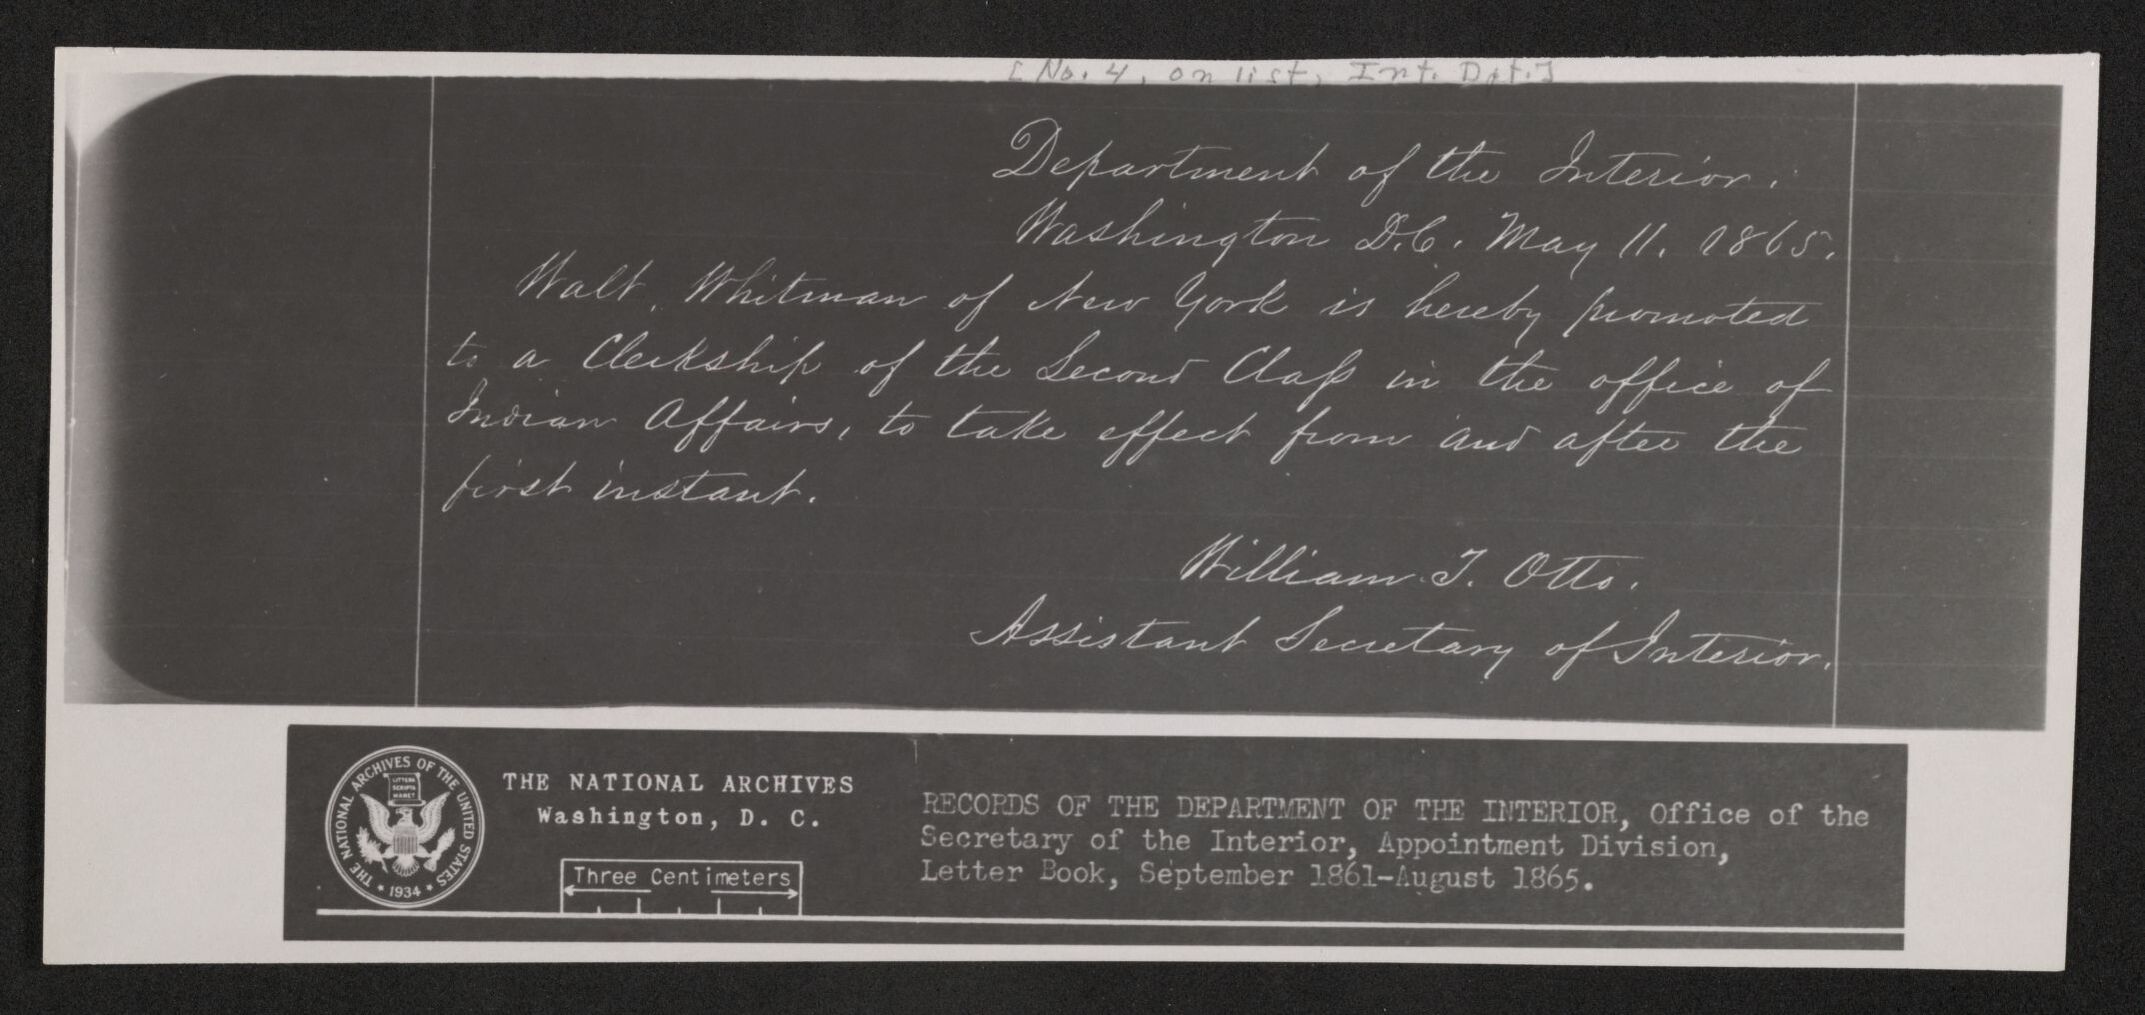 [No. 4, on list, Int. Dpt.]
Department of the Interior.
Washington D.C. May 11. 1865.
Walt. Whitman of New York is hereby promoted
to a Clerkship of the Second Claſs in the office of
Indian Affairs, to take effect from and after the
first instant.
William T. Otto.
Assistant Secretary of Interior.
THE NATIONAL ARCHIVES OF THE UNITED STATES
LITTERA
SCRIPTA
MANET
* 1934 *
THE NATIONAL ARCHIVES
Washington, D. C.
Three Centimeters
RECORDS OF THE DEPARTMENT OF THE INTERIOR, Office of the
Secretary of the Interior, Appointment Division,
Letter Book, September 1861-August 1865.